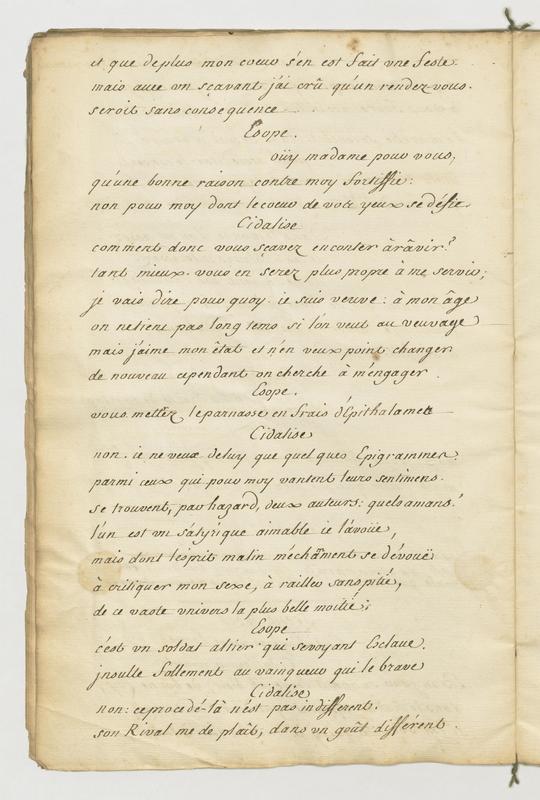 et que deplus mon coeur s'en est fait une feste.
mais avec un sçavant j'ai crû qu'un rendez-vous.
seroit sans consequence
Esope.
oüy madame pour vous,
qu'une bonne raison contre moy fortiffie:
non pour moy dont le coeur de vos yeux se défie.
Cidalise
comment donc vous sçavez en conter à râvir?
tant mieux. vous en serez plus propre à me servir;
je vais dire pour quoy. ie suis veuve: à mon âge
on ne tient pas long tems si l'on veut au veuvage
mais j'aime mon êtat et n'en veux point changer
de nouveau cependant on cherche à m'engager.
Esope.
vous mettez le parnasse en frais d'Epithalames
Cidalise
non. ie ne veux de luy que quelques Epigrammes.
parmi ceux qui pour moy vantent leurs sentimens.
se trouvent, par hazard, deux auteurs: quels amans!
l'un est vn satyrique aimable ie l'avoüe,
mais dont l'esprit malin méchâment se dévoüe
à critiquer mon sexe, à railler sans pitié,
de ce vaste vnivers la plus belle moitié;
Esope
c'est vn soldat altier qui se voyant Esclave.
jnsulte follement au vainqueur qui le brave
Cidalise
non: ce procedé-là n'est pas indifferent.
son Rival me déplaît, dans vn goût différent.